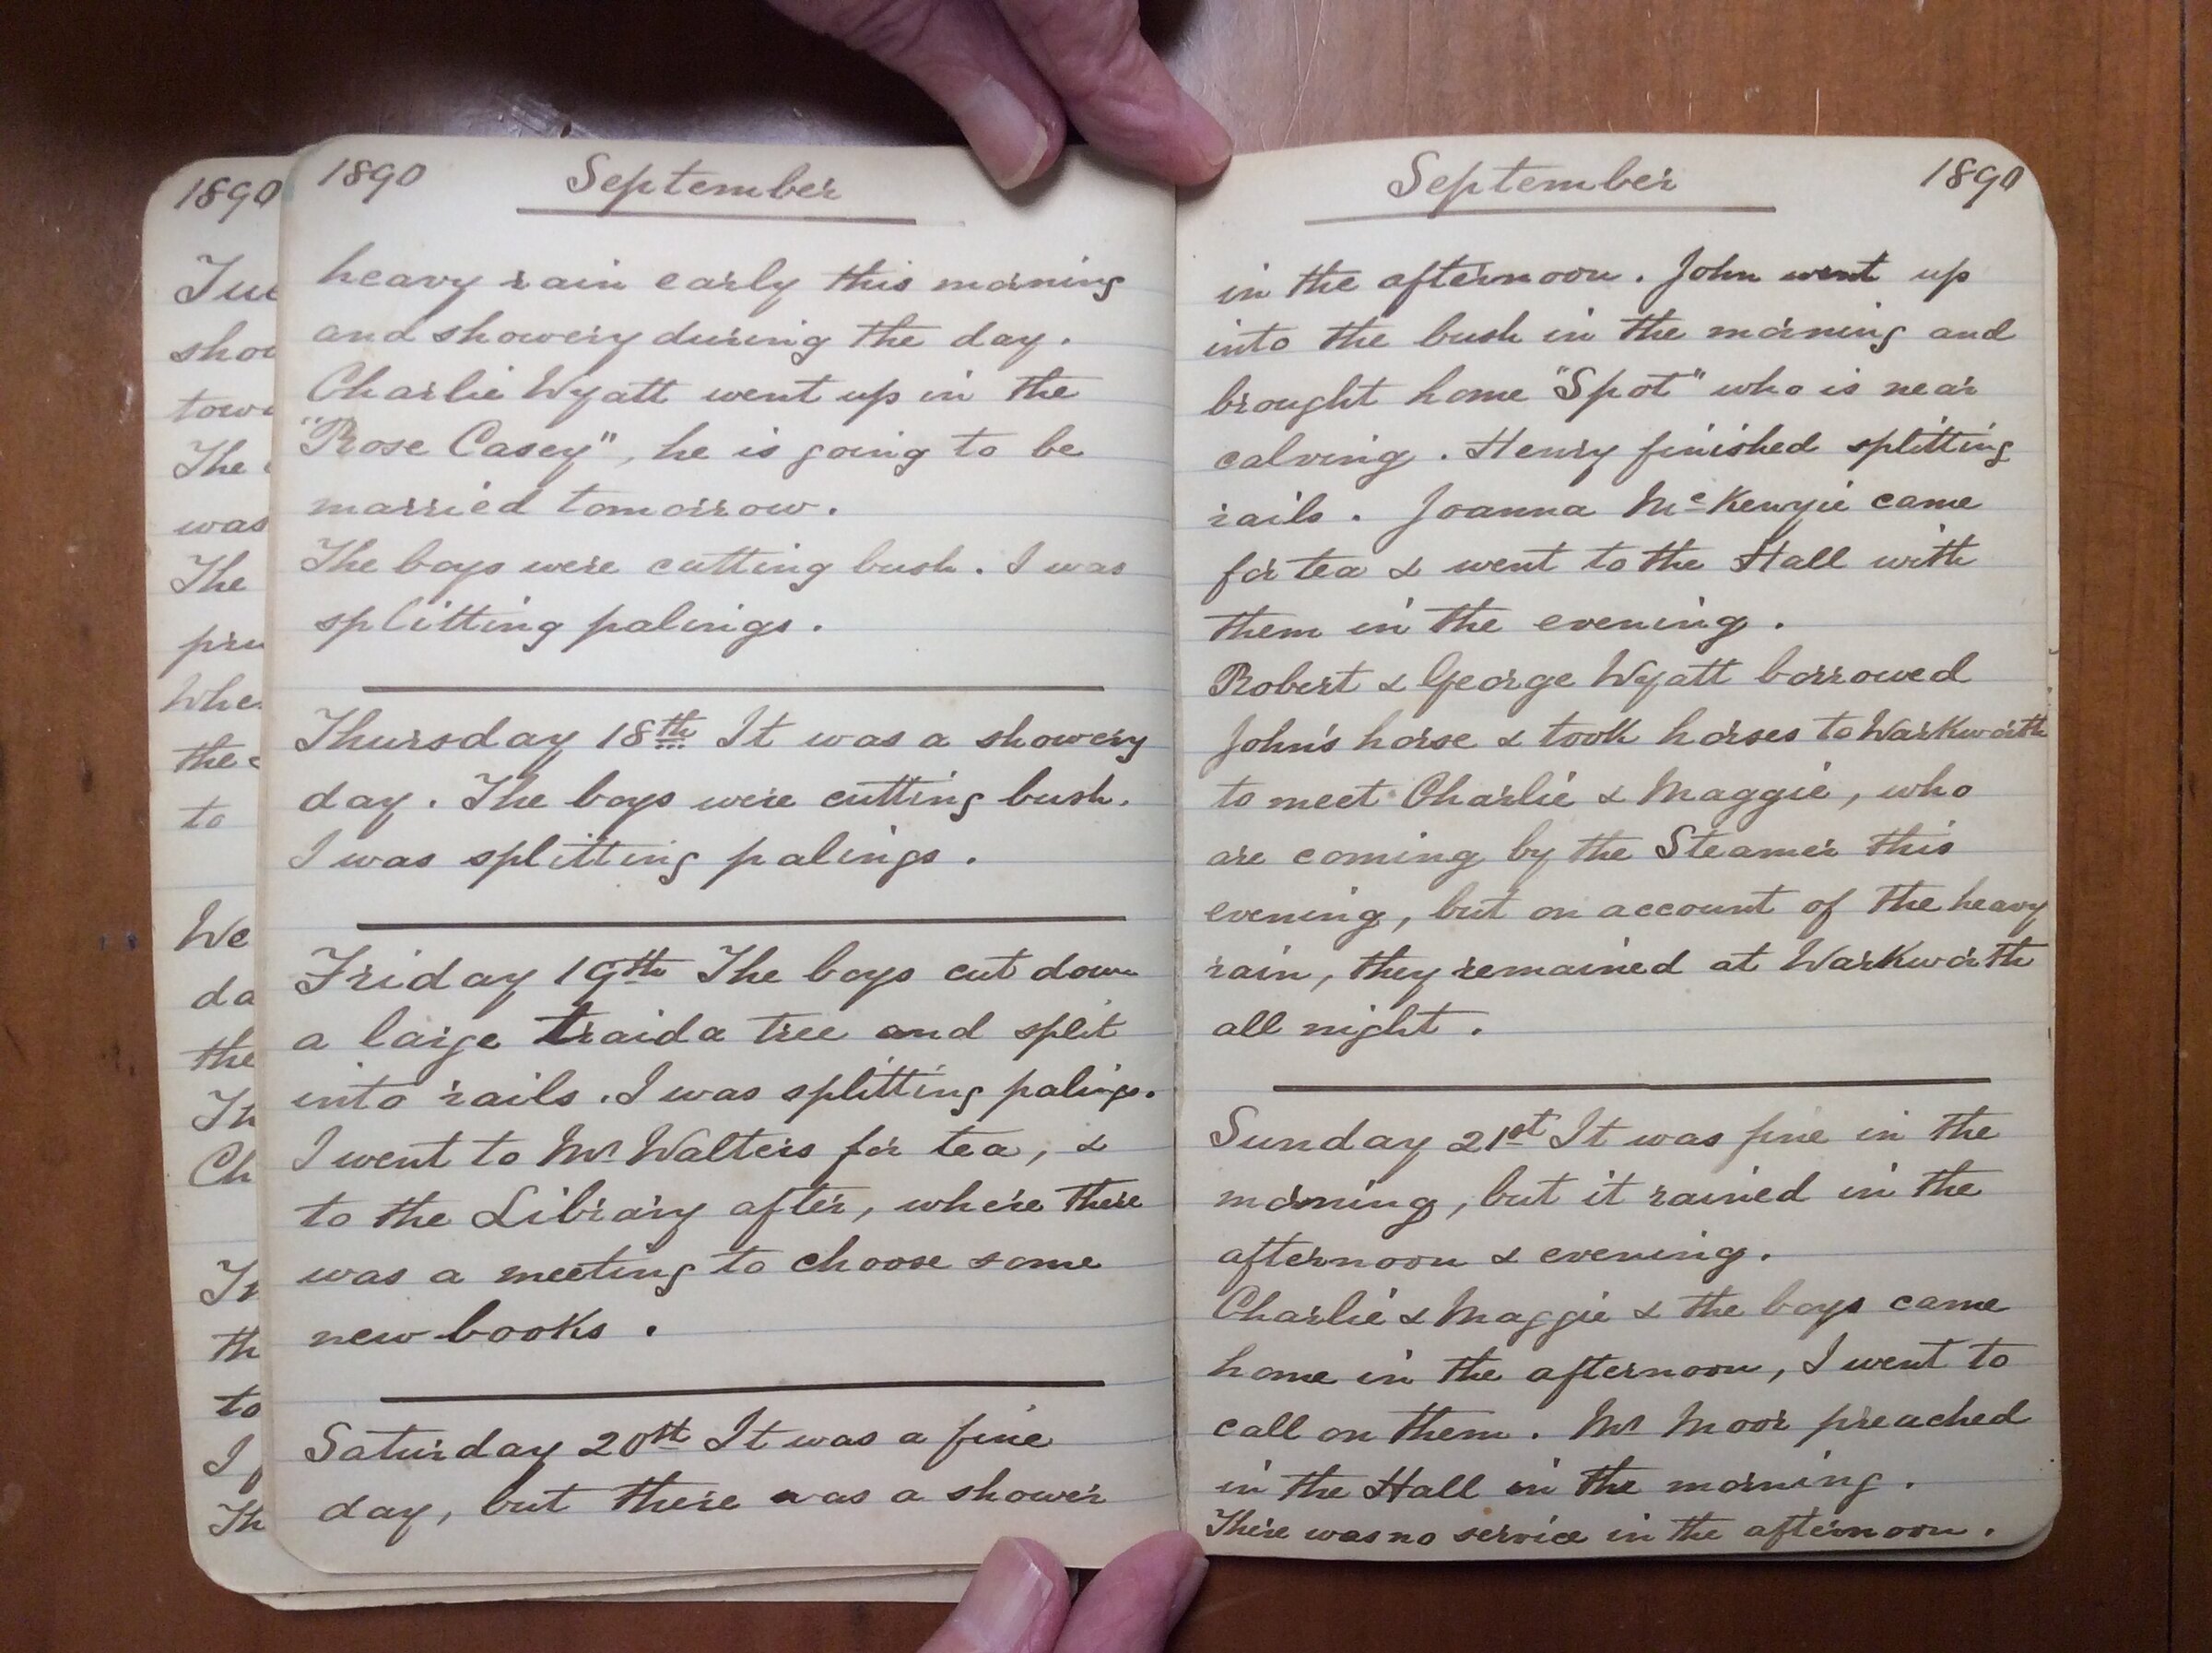 1890
Tue
show
tow
The
was
The
pru
whe
the
to
We
da
the
Th
Ch
In
th
to
I
Th
1890 September
heavy rain early this morning
and showery during the day.
Charlie Wyatt went up in the
"Rose Casey", he is going to be
married tomorrow.
The boys were cutting bush. I was
splitting palings.
Thursday 18th It was a showery
day. The boys were cutting bush.
I was splitting palings.
Friday 19th The boys cut down
a large traida tree and split
into rails. I was splitting palings.
I went to Mr Walters for tea, &
to the Library after, where there
was a meeting to choose some
new books.
Saturday 20th It was a fine
day, but there was a shower
September 1890
in the afternoon. John went up
into the bush in the morning and
brought home "Spot" who is near
calving. Henry finished splitting
rails. Joanna McKenzie came
for tea & went to the Hall with
them in the evening.
Robert & George Wyatt borrowed
John's horse & took horses to Warkworth
to meet Charlie & Maggie, who
are coming by the Steamer this
evening, but on account of the heavy
rain, they remained at Warkworth
all night.
Sunday 21st It was fine in the
morning, but it rained in the
afternoon & evening.
Charlie & Maggie & the boys came
home in the afternoon, I went to
call on them. Mr Moor preached
in the Hall in the morning.
There was no service in the afternoon.